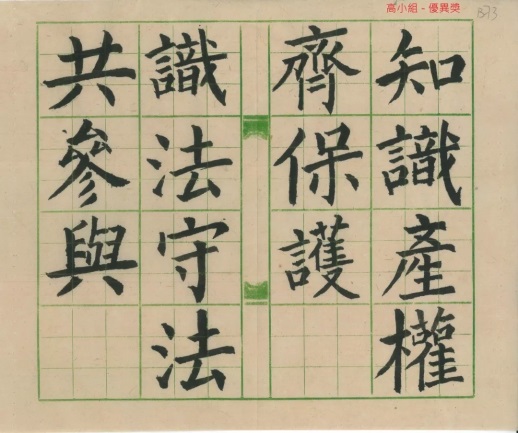 高小組 - 優異獎
B73
知識產權
齊保護
識法守法
共參與